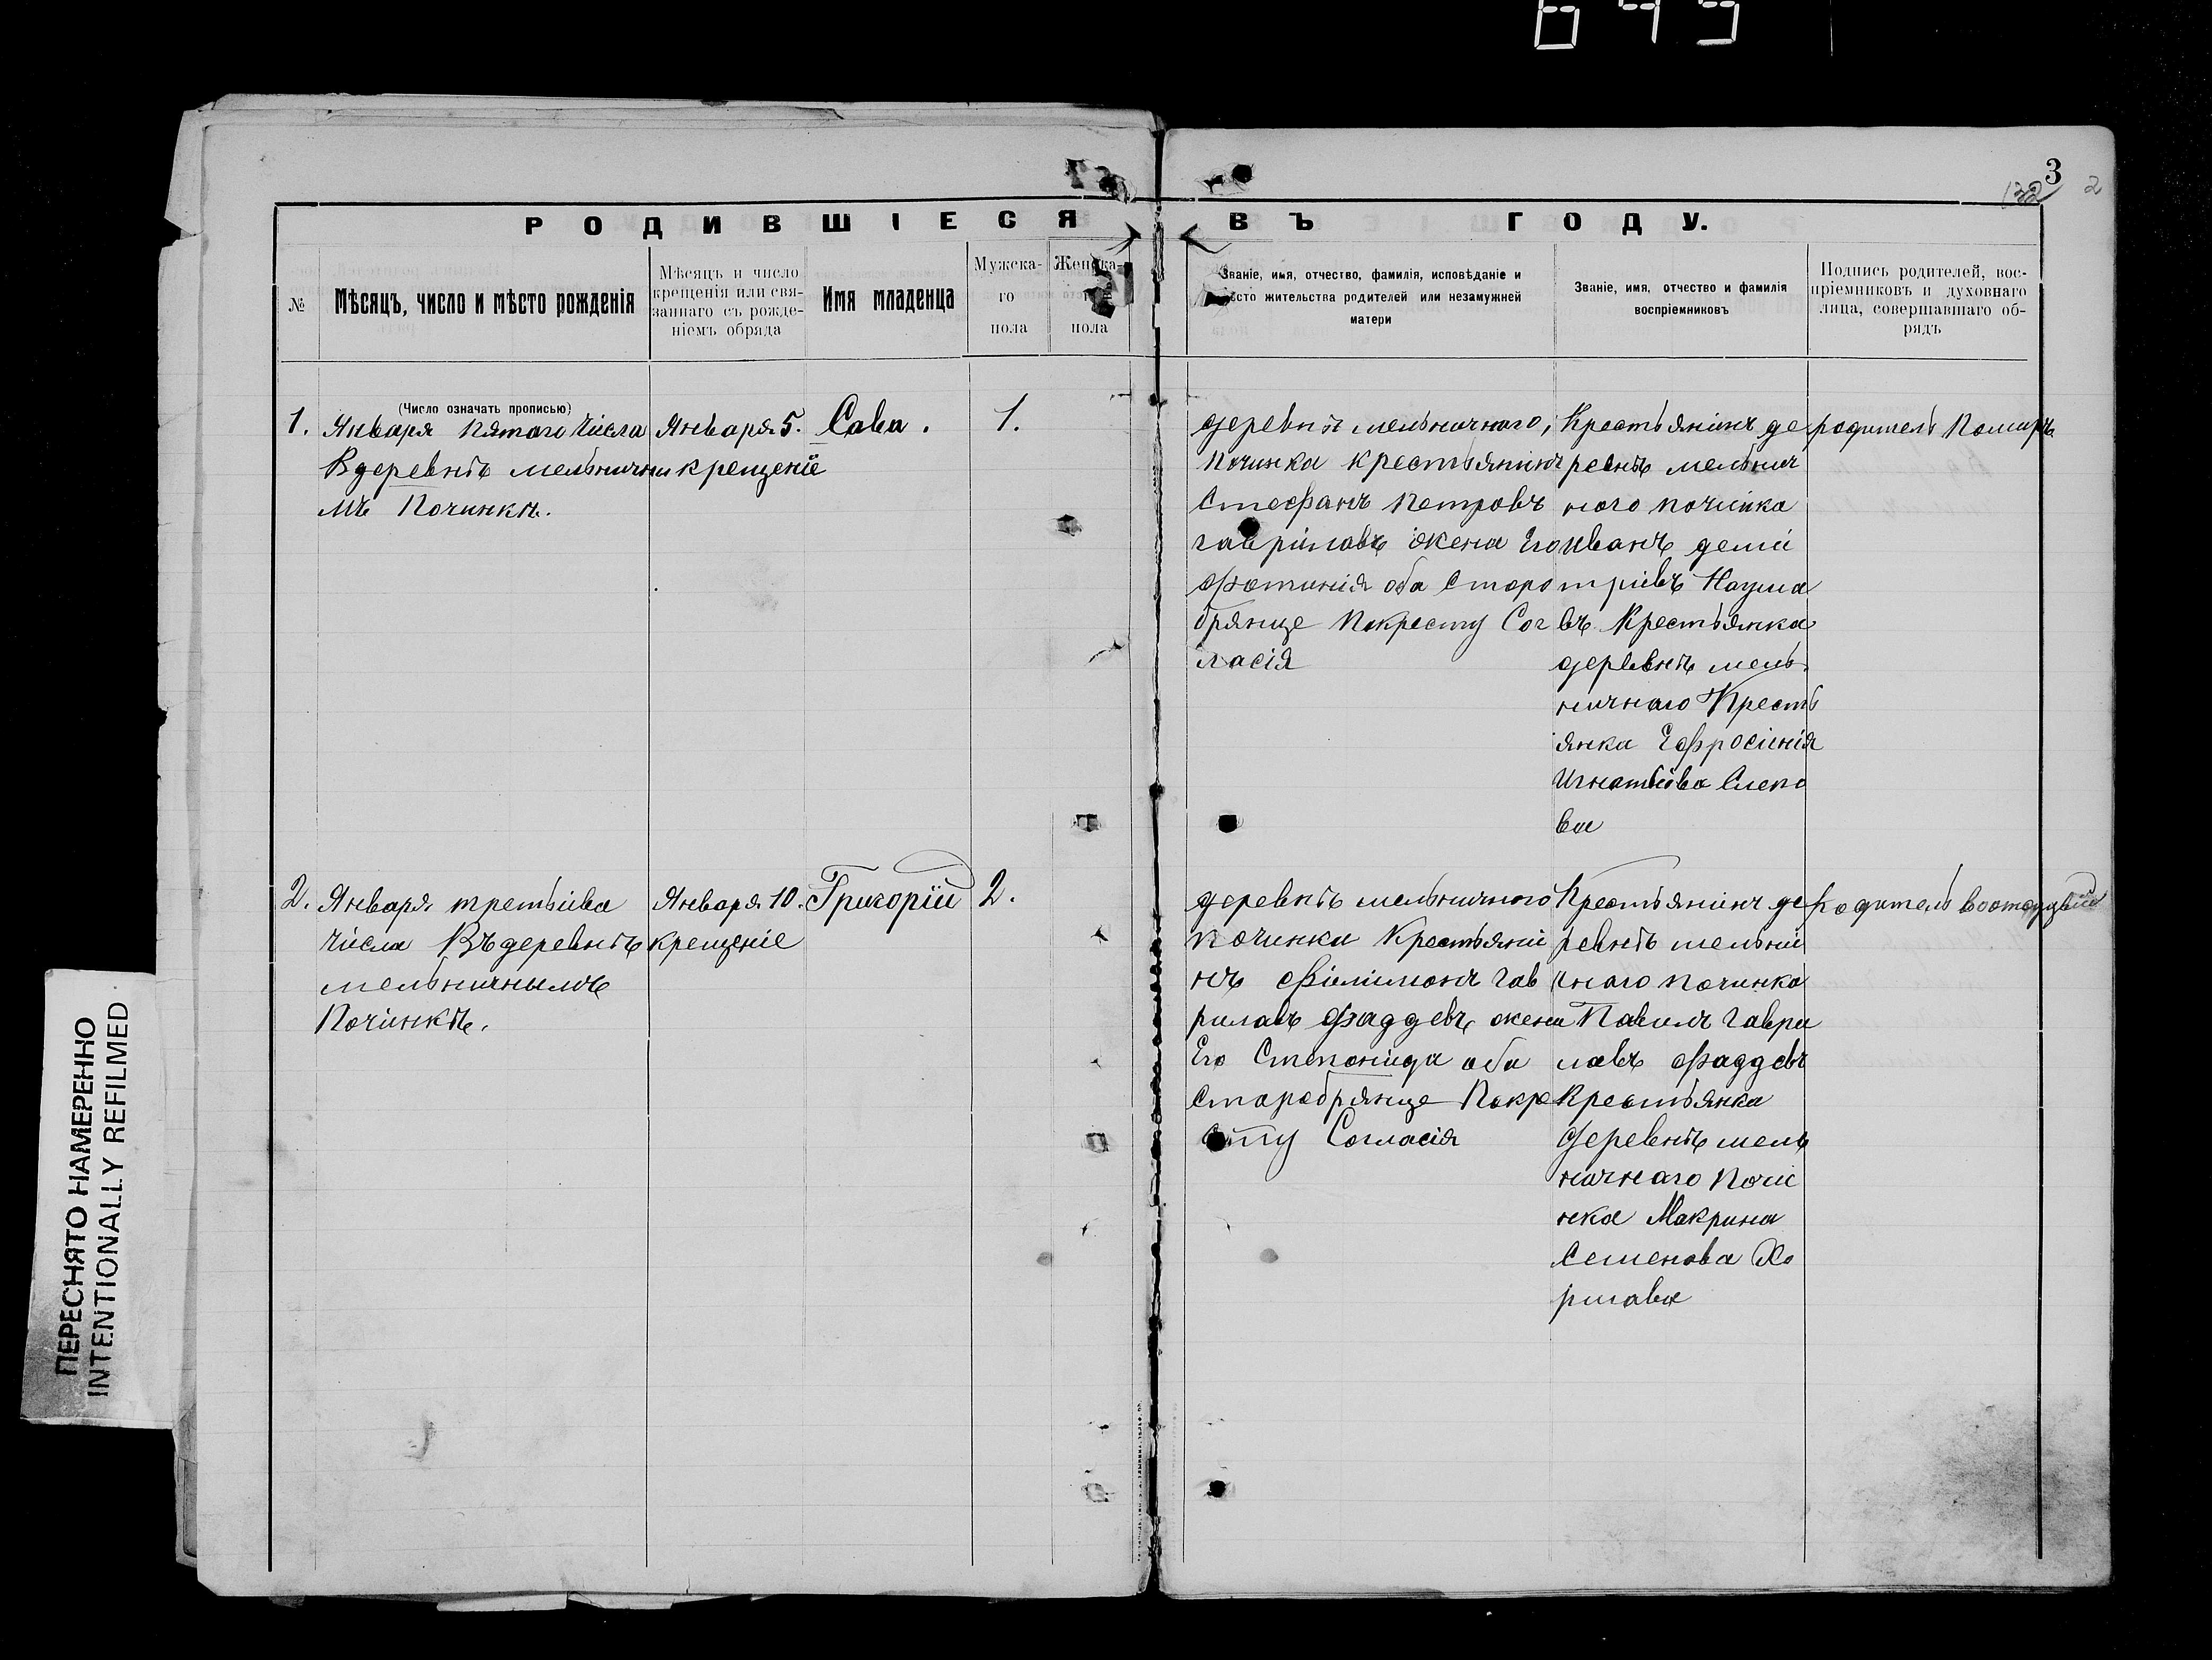 649
3
132
2
РОДИВШІЕСЯ ВЪ ГОДУ.
№
Мѣсяцъ, число и мѣсто рожденія
Мѣсяцъ и число
крещенія или свя-
заннаго съ рожде-
ніемъ обряда
Имя младенца
Мужска-
го
пола
Женска-
пола
Званіе, имя, отчество, фамилія, исповѣданіе и
мѣсто жительства родителей или незамужней
матери
Званіе, имя, отчество и фамилія
воспріемниковъ
Подпись родителей, вос-
пріемниковъ и духовнаго
лица, совершавшаго об-
рядъ
(Число означать прописью)
1.
Января пятаго числа
В деревнѣ мельнични
мъ Починкѣ.
Января 5.
крещеніе
Сава.
1.
деревнѣ мельничнаго,
починка крестьянинъ
Стефанъ Петровъ
гаврилавъ іжена Его
Фотинія оба Старо
брянце Покресту Сог
ласія
Крестьянинъ де
ревнѣ мельнич
ного починка
Иванъ деми
тріевъ Наума
въ Крестьянка
деревнѣ мель
ничнаго Кресть
янка Ефросинія
Игнатьева Слепо
ва
родитель Помиръ
2.
Января третьива
числа Въ деревнѣ
мельничнымъ
Починкѣ.
Января 10.
крещеніе
Григорій
2.
деревнѣ мельничного
починка Крестьяни
нъ Филимонъ гав
рилавъ Фаддевъ, жена
Его Степонида оба
Старобрянце Покре
сту Согласія
Крестьянинъ де
ревнѣ мельни
чнаго починка
Павилъ Гаври
лавъ Фаддевъ
Крестьянка
деревнѣ мель
ничнаго Почи
нка Макрина
Семенова Хо
рмава
Родитель
ПЕРЕСНЯТО НАМЕРЕННО
INTENTIONALLY REFILMED